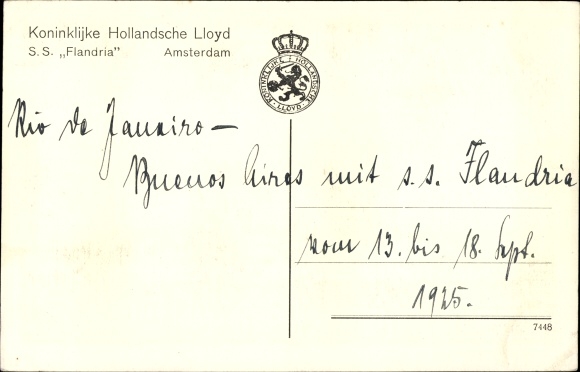 Koninklijke Hollandsche Lloyd
S.S. „Flandria” Amsterdam
KONINKLIJKE HOLLANDSCHE LLOYD
Rio de Janeiro –
Buenos Aires mit s.s. Flandria
vom 13. bis 18. Sept.
1925.
7448